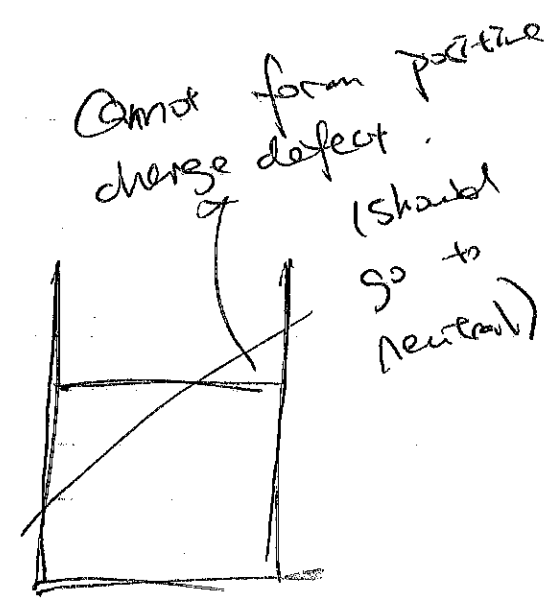 Cannot form positive
charge defect.
(should
go to
neutral)